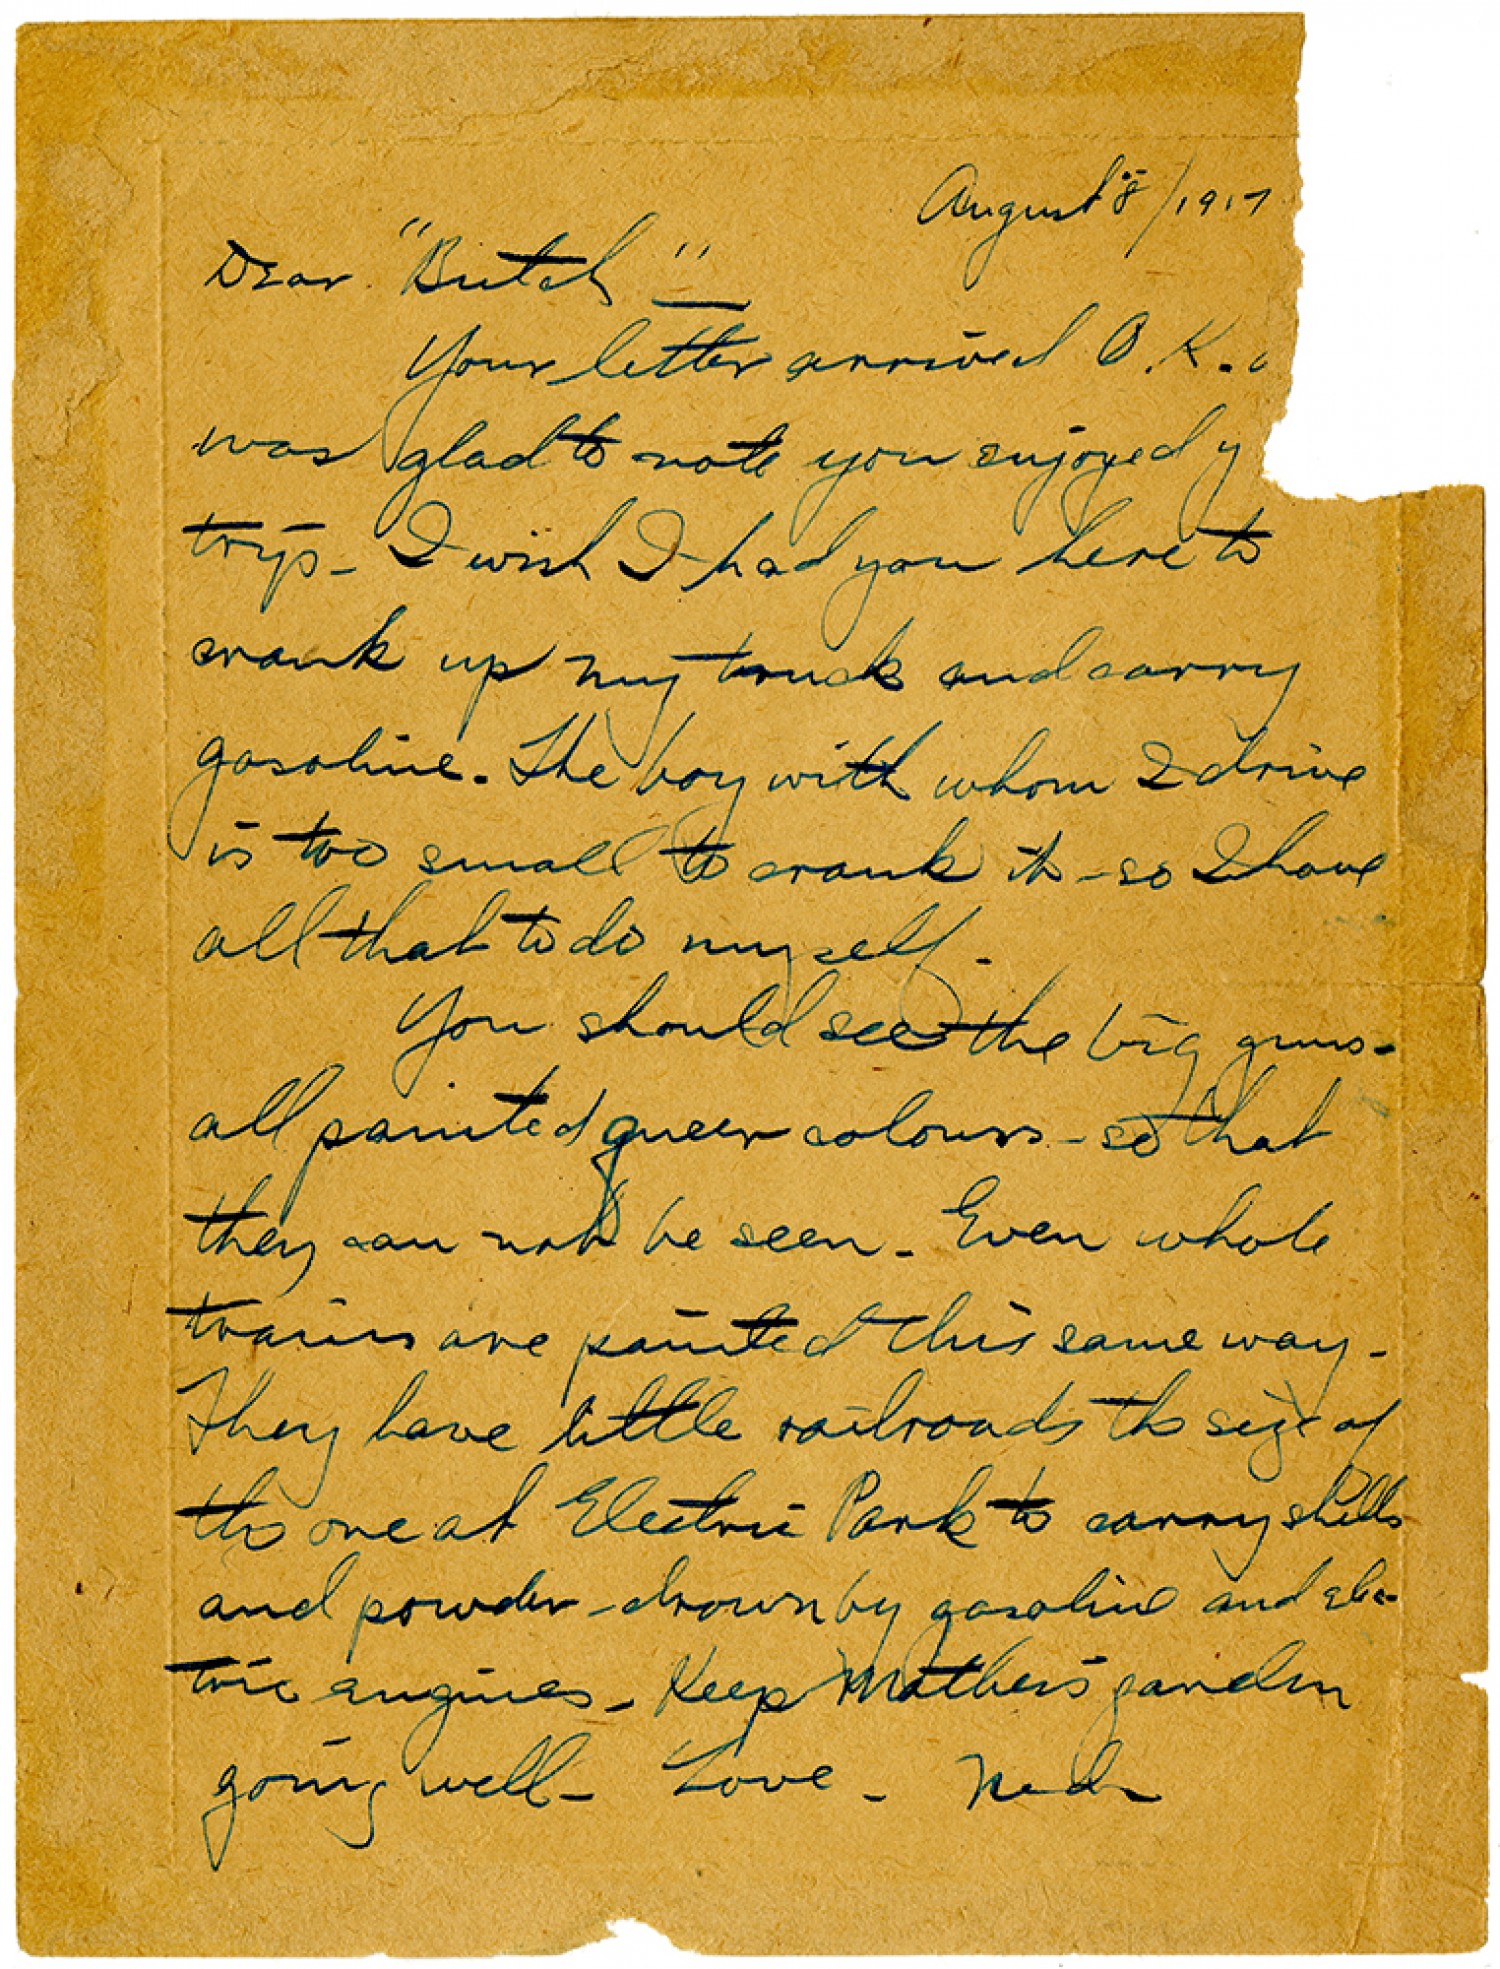 August 8/1917
Dear "Butch"
Your letter arrived O.K.
was glad to note you enjoyed y
trip - I wish I had you here to
crank up my truck and carry
gasoline. The boy with whom I drive
is too small to crank it - so I have
all that to do myself.
You should see the big guns -
all painted queer colours - so that
they can not be seen - Even whole
trains are painted this same way -
They have little railroads the size of
the one at Electric Park to carry shells
and powder - drawn by gasoline and elec-
tric engines - Keep Mother's garden
going well - Love - Ned